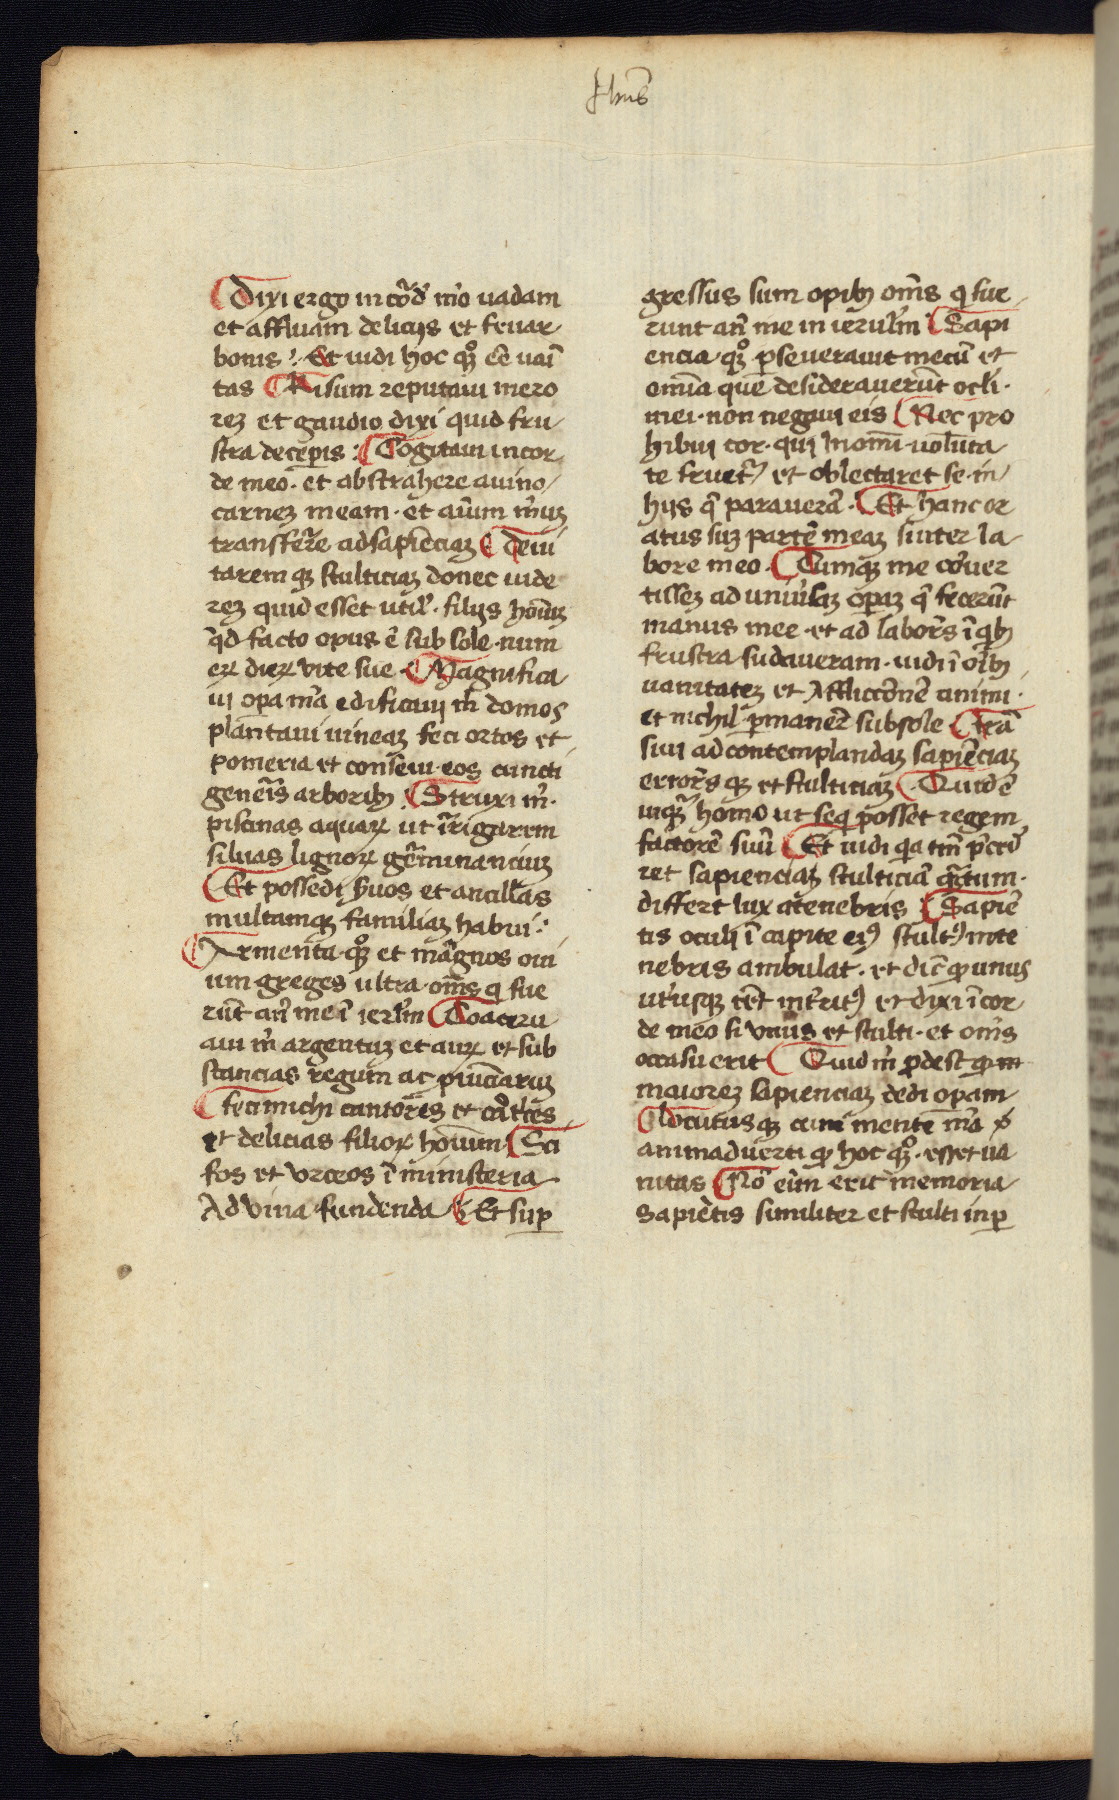 Jhus
Dixi ergo in cord̄ m̄o uadam
et affluam delicijs et fruar
bonis Et uidi hoc q̄ꝫ eē uani
tas Risum reputaui mero
reꝫ et gaudio dixi quid fru
stra deceperis Cogitaui in cor
de meo · et abstrahere a uino
carneꝫ meam · et aīum m̄uꝫ
transferr̄e ad sapiēciaꝫ Deui
tarem qꝫ stulticiaꝫ donec uide
reꝫ quid esset util̄ · filijs hoīuꝫ
qd̄ facto opus ē sub sole · num
eꝝ dieꝝ vite sue Magnifica
ui opa m̄a edificaui m̄ domos
plantaui uineaꝫ feci ortos et
pomeria et conseui · eos cuncti
gene͛is arboribꝫ Struxi m̄ ·
piscinas aquaꝝ ut ir̄igarem
siluas lignoꝝ ge͛minanciuꝫ
Et possedi s̄uos et ancillas
multamqꝫ familiaꝫ habui
Armenta · q̄ꝫ et magnos oui
um greges ultra · om̄s q fue
rūt an̄ me ī ierl̄m Coaceru
aui m̄ argentuꝫ et auꝝ et sub
stancias regum ac ꝓuīciaruꝫ
feci michi cantores et cātͥces
et delicias filioꝝ hoīum · Sci
fos et vrceos ī ministeria
Ad vina fundenda Et suꝑ
gressus sum opibꝫ om̄s q fue
runt an̄ me in ierusl̄m Sapi
encia · q̄ꝫ ꝑseuerauit mecū et
omīa que desiderauerūt ocl̄i ·
mei · non negaui eis Nec pro
hibui cor · qui in omī uolupta
te fruet͛ et oblectaret se · in
hijs q̄ parauerā · Et hanc or
atus suꝫ partē meaꝫ si uter la
bore meo · Cumqꝫ me cōuer
tisseꝫ ad uniu͛saꝫ opaꝫ q̄ fecerūt
manus mee · et ad labor̄s ī qbꝫ
frustra sudaueram · uidi ī oībꝫ
uanitateꝫ et Afflictōnē animi ·
et nichil · ꝑmaner̄ sub sole Trā
siui ad contemplandaꝫ sapiēciaꝫ
error̄s qꝫ et stulticiaꝫ · Quid ē
inqͣꝫ homo ut seq posset regem
factorē suū Et uidi qa tm̄ p̄ced͛
ret sapienciaꝫ stulticiā qͣntum ·
differt lux a tenebris Sapiē
tis oculi ī capite eiꝰ stultꝰ in te
nebris ambulat · et didic ꝙ unus
ut͛usqꝫ eēt int͛ritꝰ et dixi ī cor
de meo si vnus et stulti · et om̄s
occasu erit Quid m̄ ꝓdest ꝙ m
maioreꝫ sapienciaꝫ dedi opam
locutusqꝫ cum mente m̄a
animaduerti ꝙ hoc q̄ꝫ · esset ua
nitas Nō eīm erit memoria
Sapiētis similiter et stulti inꝑ